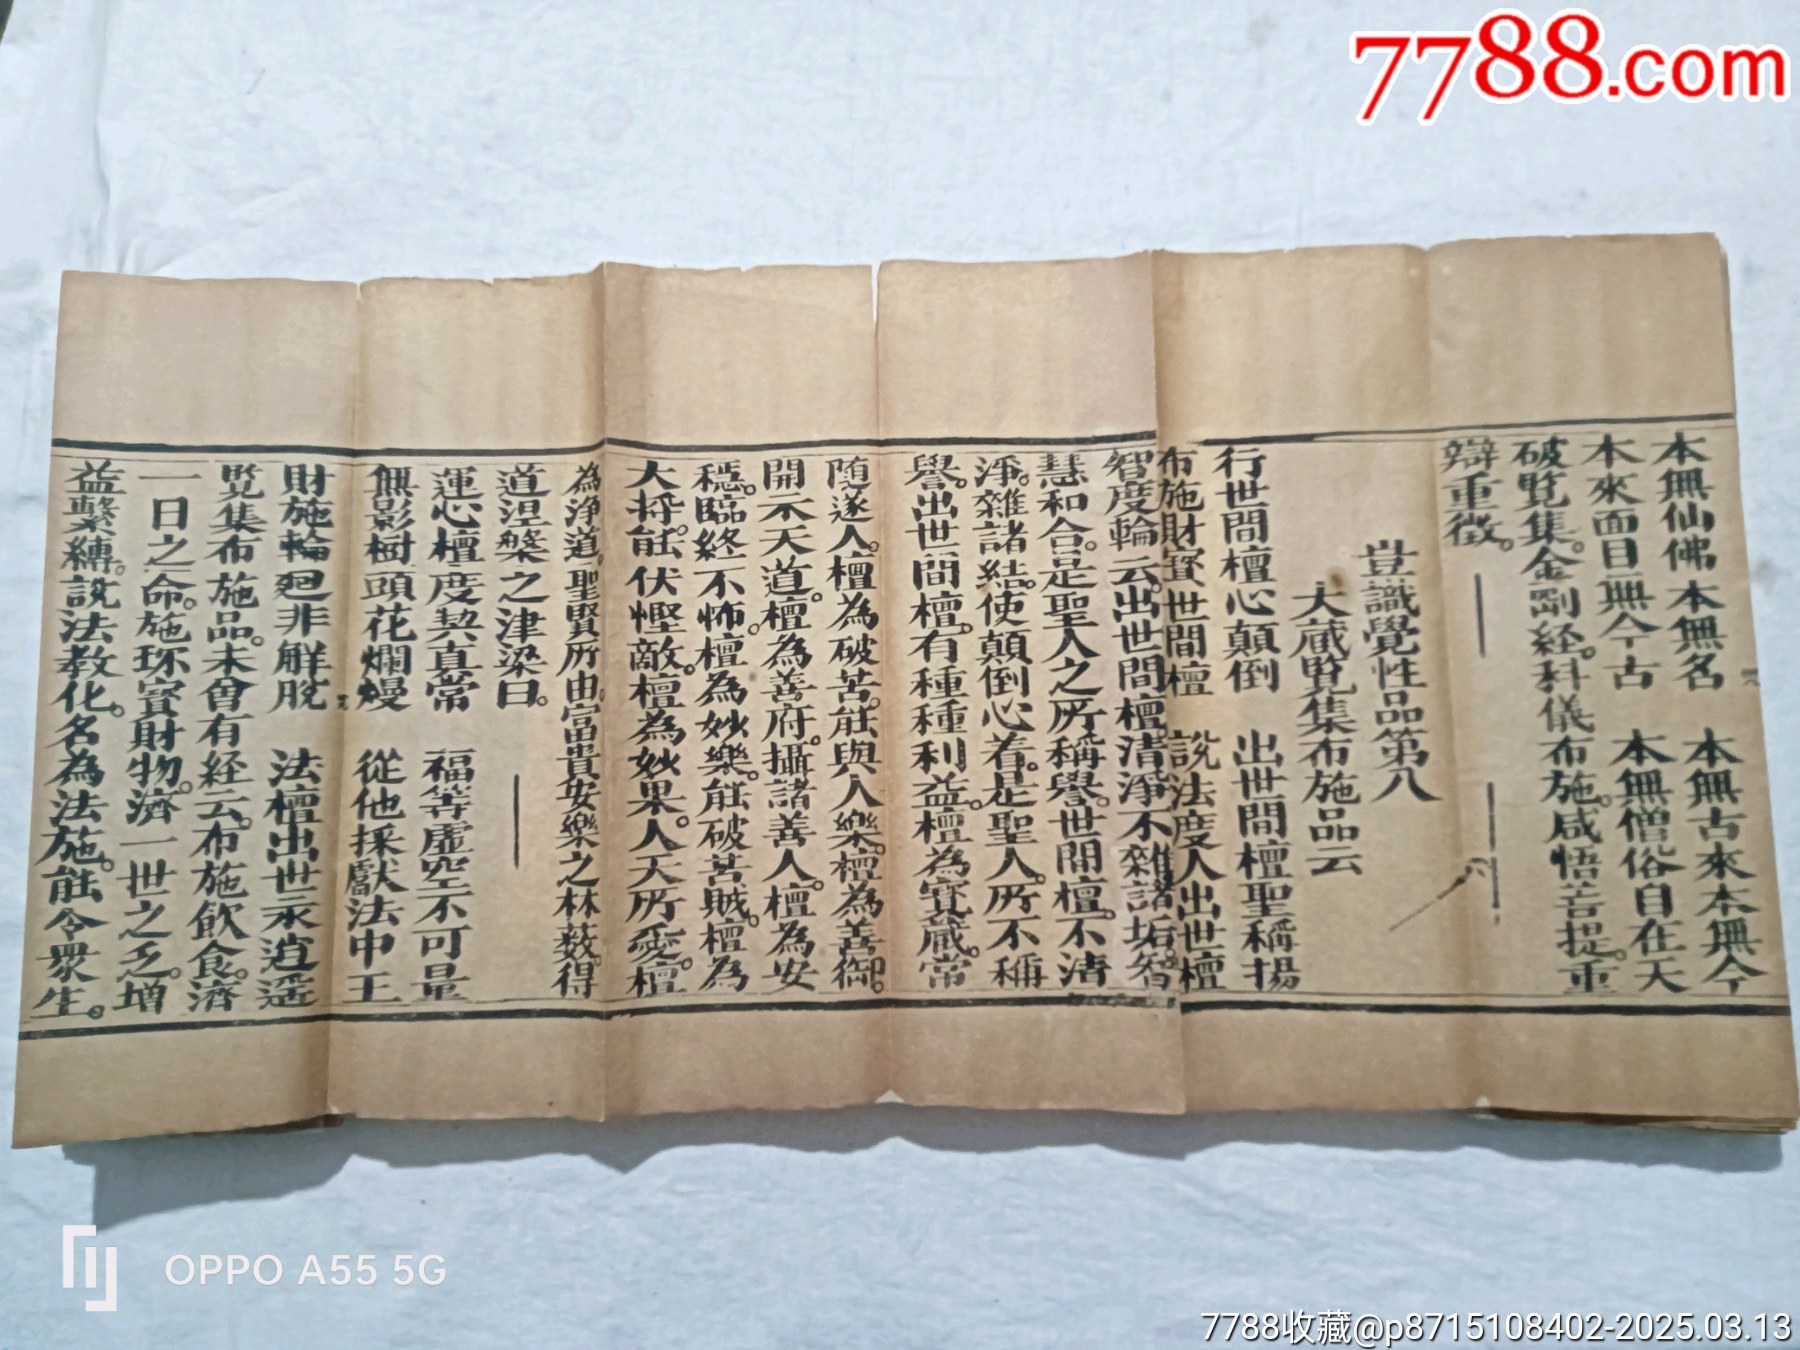 7788.com
本無仙佛本無名　本無古來本無今
本來面目無今古　本無僧俗自在天
破覧集。金剛経。科儀布施。咸悟菩提。重
辯重徵。
豈識覺性品第八
大蔵覧集布施品云
行世間檀心顛倒　出世間檀聖稱揚
布施財寳世間檀　說法度人出世檀
智度輪云。出世間檀。清淨不雜諸垢。智
慧和合。是聖人之所稱譽。世間檀。不清
淨。雜諸結。使顛倒心着。是聖人。所不稱
譽。出世間檀。有種種利益。檀為寳蔵。常
随遂人。檀為破苦。能與人樂。檀為善御。
開示天道。檀為善府。攝諸善人。檀為安
穏。臨終不怖。檀為妙樂。能破苦賊。檀為
大将。能伏慳敵。檀為妙果。人天所愛。檀
為浄道。聖賢所由。富貴安樂之林薮。得
道涅槃之津梁曰。
運心檀度契真常　福等虛空不可量
無影樹頭花爛熳　從他採獻法中王
財施輪廻非解脫　法檀出世永逍遥
覧集布施品。未曾有経云。布施飲食。濟
一日之命。施珎寳財物。濟一世之乏。増
益繫縛。説法教化。名為法施。能令衆生。
OPPO A55 5G
7788收藏@p8715108402-2025.03.13